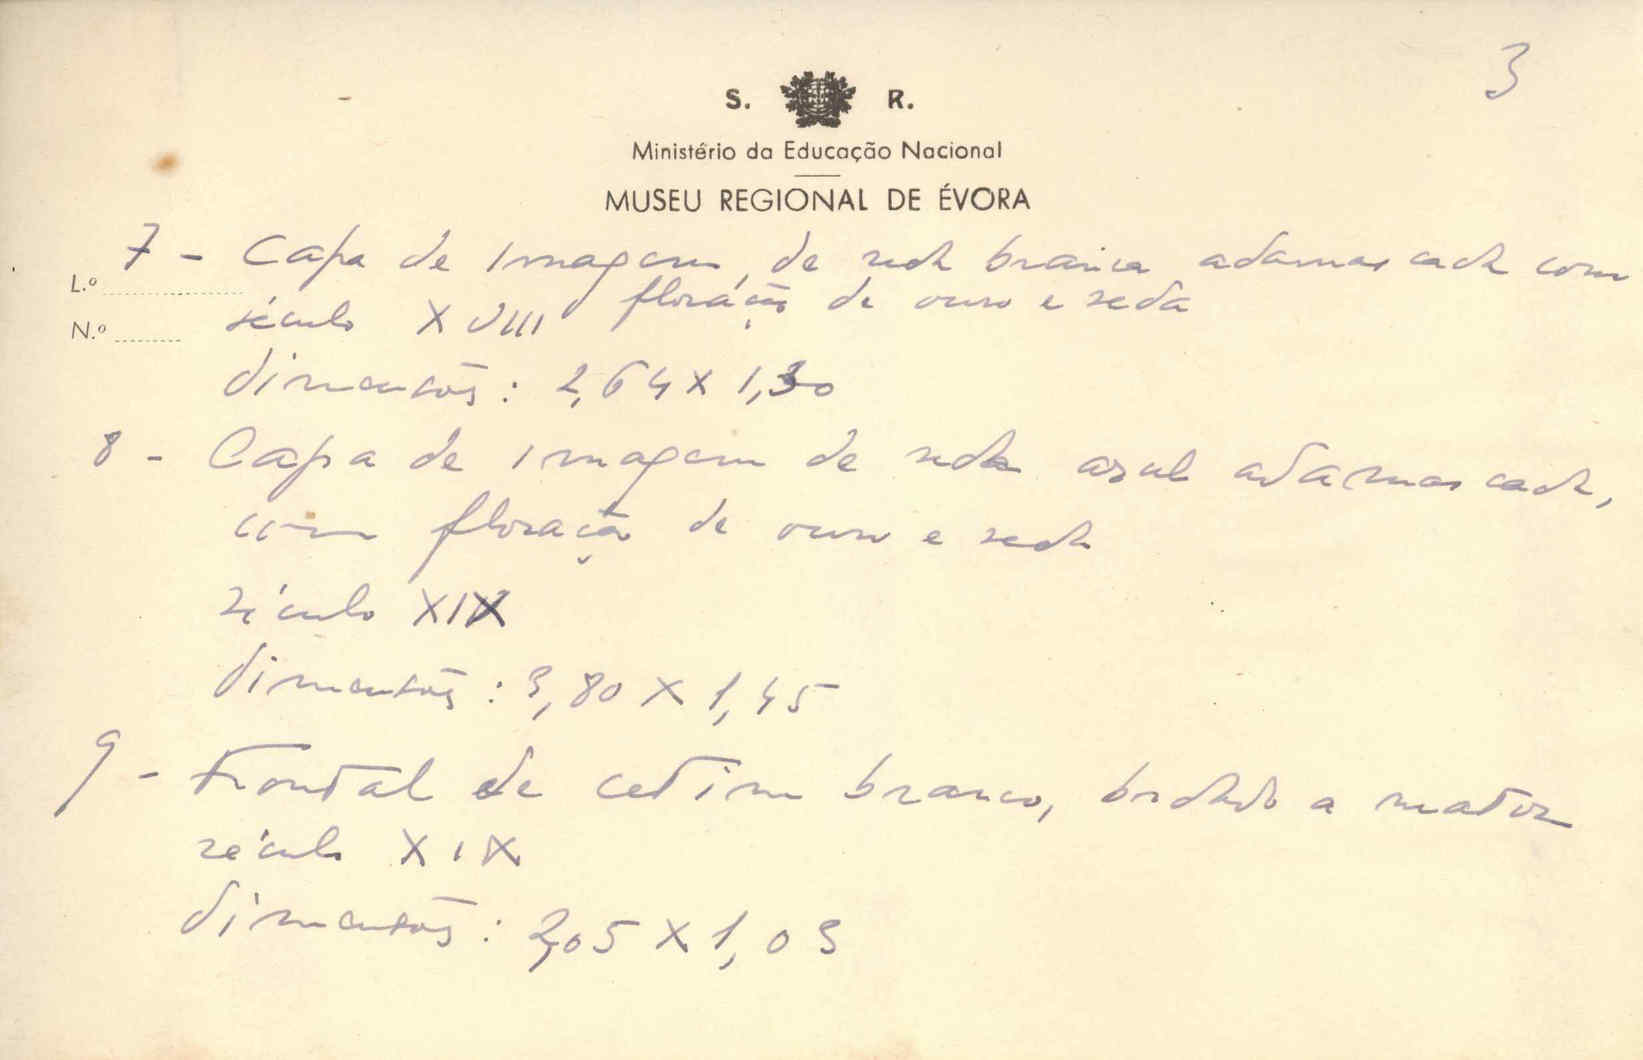 3
S. R.
Ministério da Educação Nacional
MUSEU REGIONAL DE ÉVORA
7 - Capa de imagem, de seda branca adamascada com
L.º
floração de ouro e seda
N.º
século XVIII
dimensões: 2,64 x 1,30
8 - Capa de imagem de seda azul adamascada,
com floração de ouro e seda
século XIX
dimensões: 3,80 x 1,45
9 - Frontal de cetim branco, bordado a matiz
século XIX
dimensões: 2,05 x 1,03